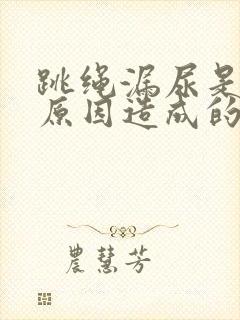 跳绳漏尿是
原因造成的
農慧芳